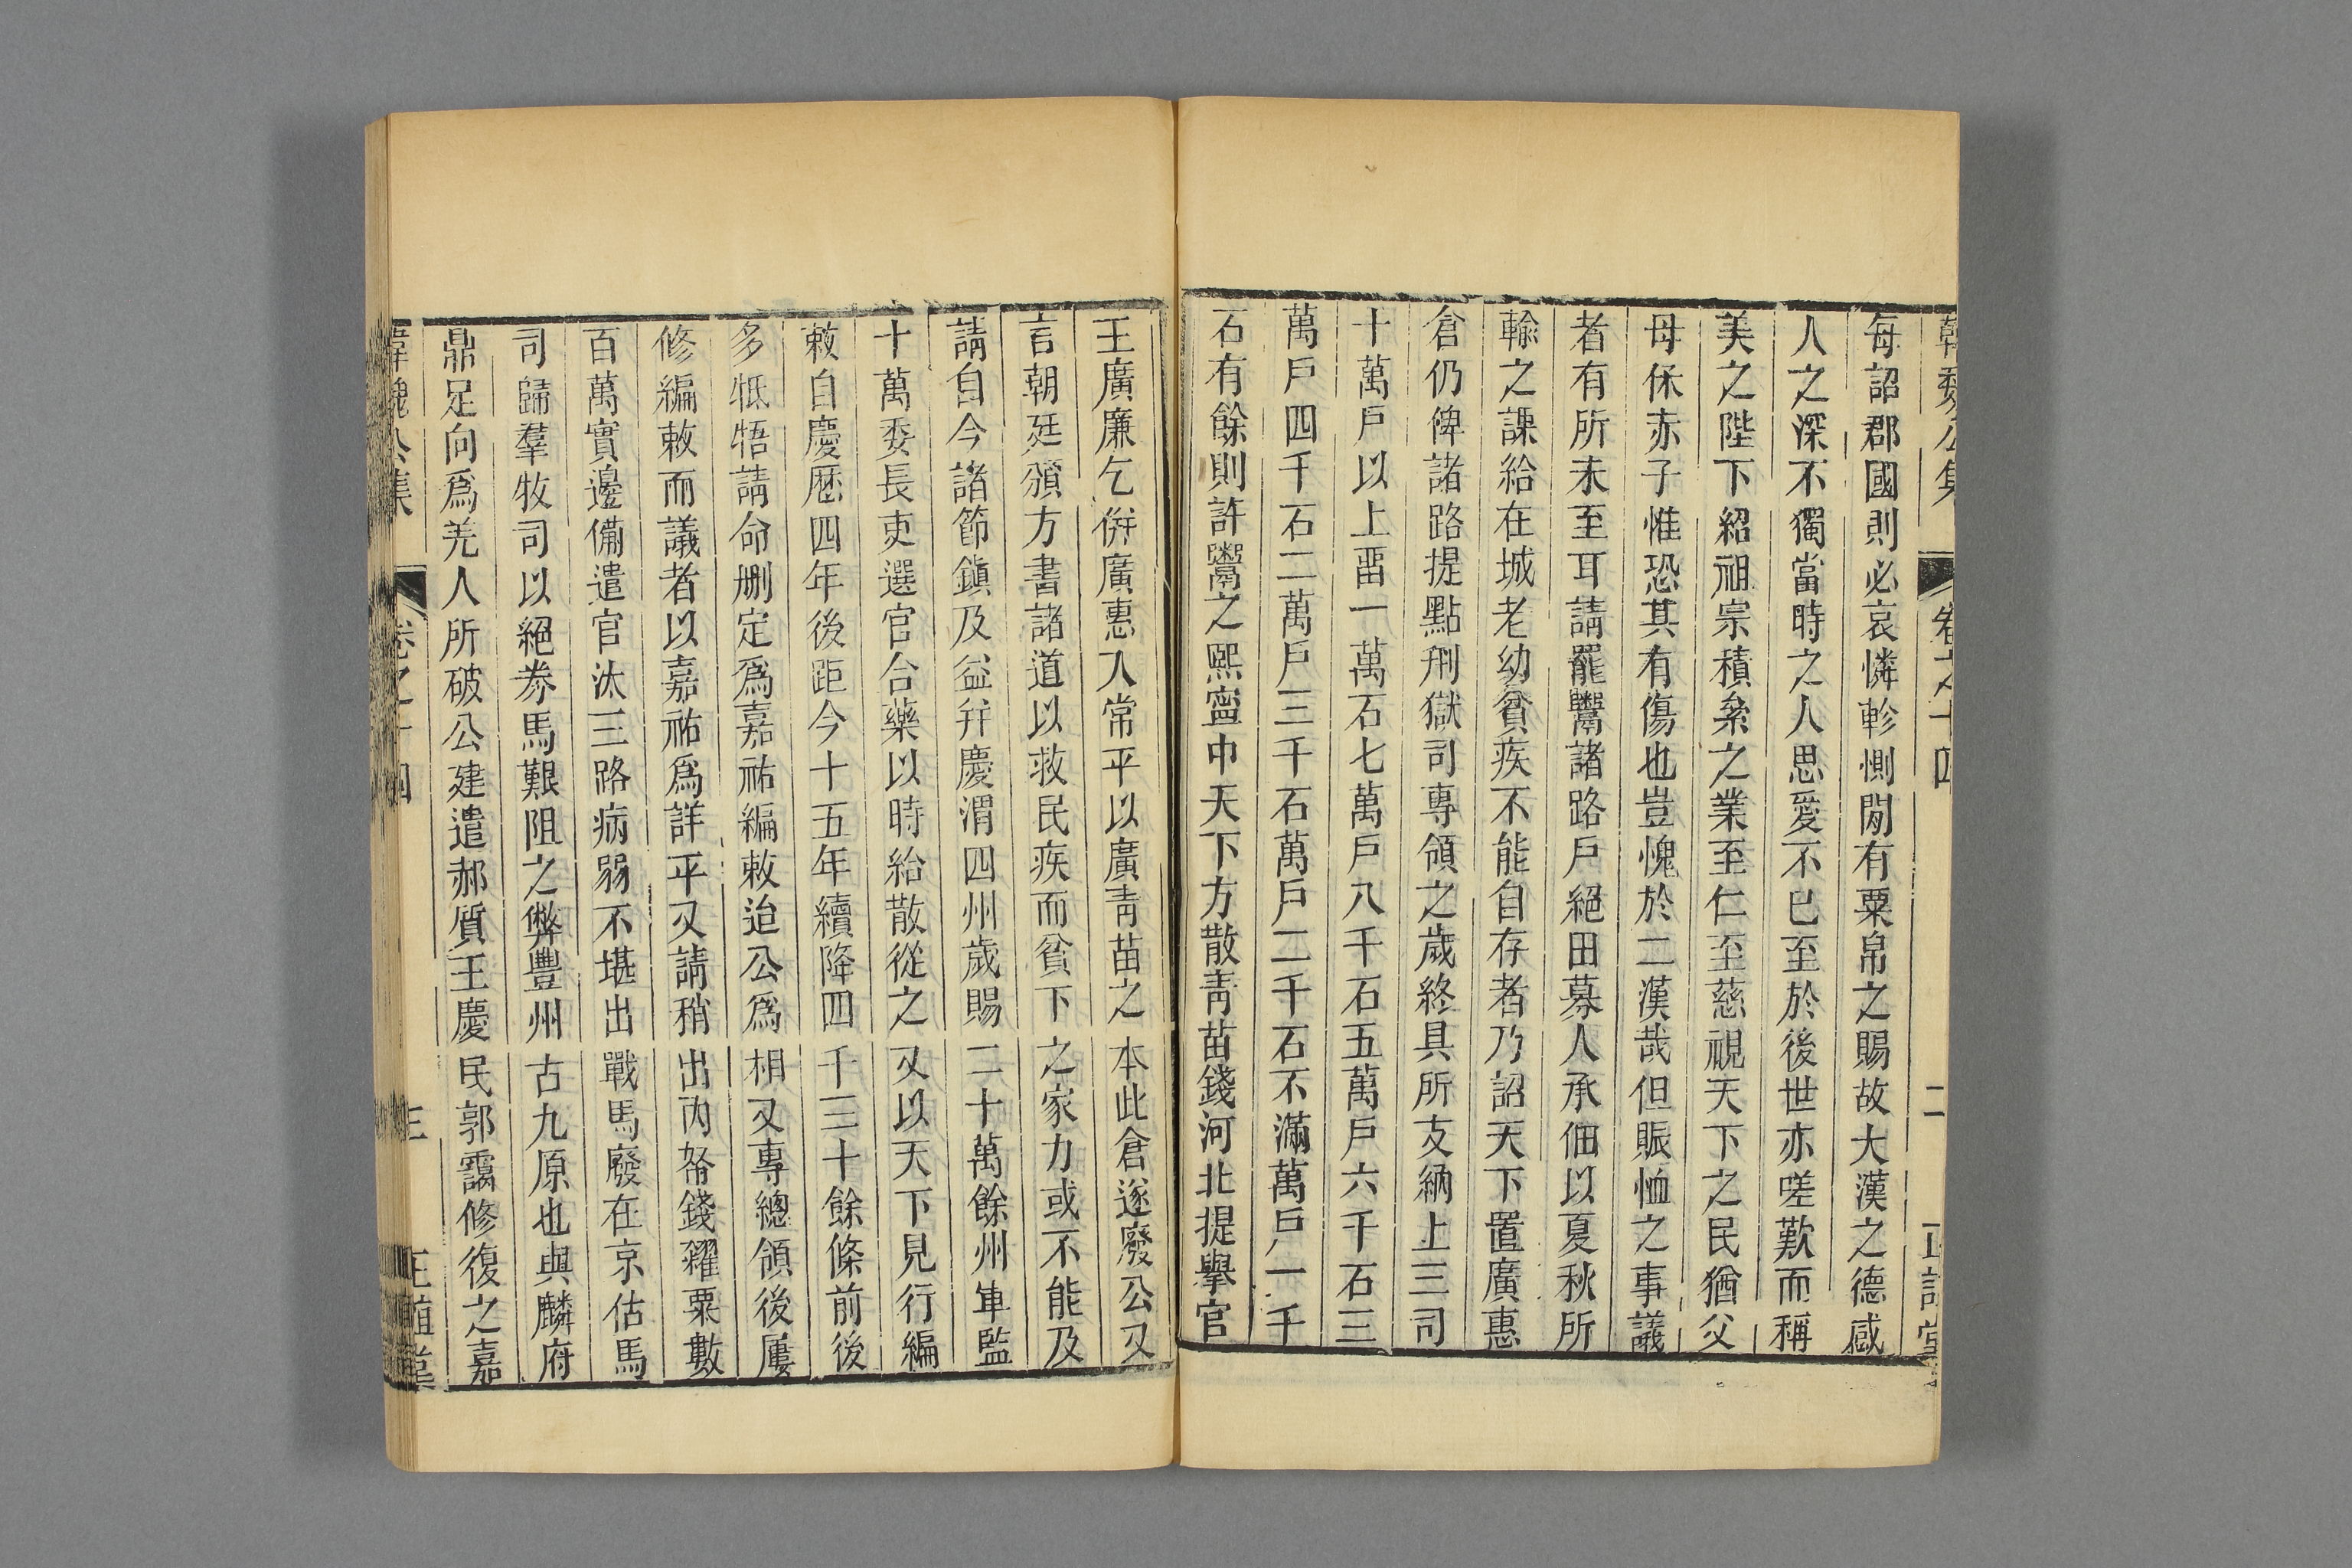 韓魏公集 卷之十四 二 正誼堂
每詔郡國則必哀憐軫惻閒有粟帛之賜故大漢之德感
人之深不獨當時之人思愛不已至於後世亦嗟歎而稱
美之陛下紹祖宗積絫之業至仁至慈視天下之民猶父
母保赤子惟恐其有傷也豈愧於二漢哉但賑恤之事議
者有所未至耳請罷鬻諸路戶絕田募人承佃以夏秋所
輸之課給在城老幼貧疾不能自存者乃詔天下置廣惠
倉仍俾諸路提點刑獄司專領之歲終具所支納上三司
十萬戶以上畱一萬石七萬戶八千石五萬戶六千石三
萬戶四千石二萬戶三千石萬戶二千石不滿萬戶一千
石有餘則許鬻之熙寧中天下方散靑苗錢河北提舉官
王廣廉乞倂廣惠入常平以廣靑苗之本此倉遂廢公又
言朝廷頒方書諸道以救民疾而貧下之家力或不能及
請自今諸節鎭及益幷慶渭四州歲賜二十萬餘州軍監
十萬委長吏選官合藥以時給散從之又以天下見行編
敕自慶歷四年後距今十五年續降四千三十餘條前後
多牴牾請命刪定爲嘉祐編敕迨公爲相又專總領後屢
修編敕而議者以嘉祐爲詳平又請稍出內帑錢糴粟數
百萬實邊備遣官汰三路病弱不堪出戰馬廢在京估馬
司歸羣牧司以絕券馬艱阻之弊豐州古九原也與麟府
鼎足向爲羌人所破公建遣郝質王慶民郭靄修復之嘉
韓魏公集 卷之十四 三 正誼堂